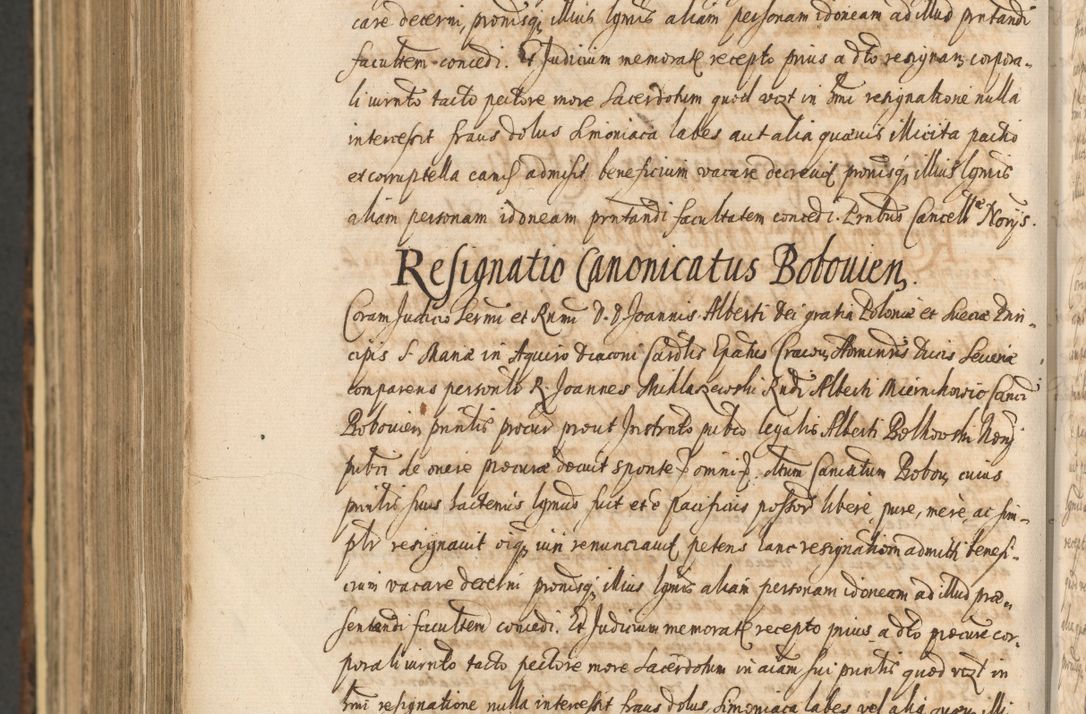 care decerni, promisq, illius lgmis aliam personam idoneam ad illud pntandi
facultem concedi. Et Judicium memorat recepto prius a dto resignan, corpora-
li iurnto tacto pectore more Sacerdotum quod vezt in hmi resignatione nulla
intercessit fraus dolus Simoniaca labes aut alia quauis illicita pactio
et corruptella eamq admisit beneficium vacare decreuit promisq, illius lgmis
aliam personam idoneam pntandi facultatem concedi. Pntbus Cancell Norijs.
Resignatio Canonicatus Bobouien,.
Coram Judicio Sermi et Rnmi D. D. Joannis Alberti Dei gratia Poloniæ et Sueciæ Prin
cipis S. Mariæ in Aquiro Diaconi Cardlis Epatus Cracou, Administris Ducis Seueriæ
comparens personlr R. Joannes Miklaszewski Rndi Alberti Miernikowic Canci
Bobouien, prinlis procur prout Instrnto pubco legalis Alberti Bolkowski Norij
pubci de onere procuræ docuit sponte omni dictum Cancatum Bobou, cuius
prinlis suus hactenus lgmus fuit et e pacificus possor libere, pure, mere, ac sim-
plr resignauit oiq, iuri renunciauit petens hanc resignationem admitti benefi-
cium vacare decerni promisq, illius lgmis aliam personam idoneam ad illud præ-
sentandi facultem concedi. Et Judicium memorat recepto prius a dto procure cor-
porali iurnto tacto pectore more Sacerdotum in aiam sui prinlis quod vezt in
hmi resignatione nulla intercessit fraus dolus Simoniaca labes vel alia quæuis illi